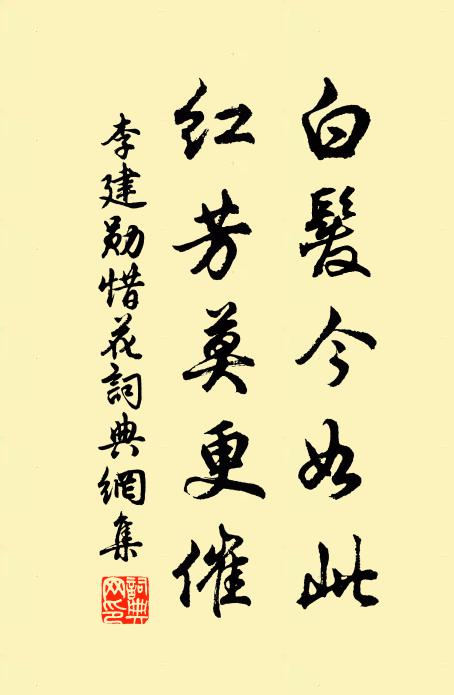 白髮今如此
紅芳莫更催
李建勛惜花詞典網集
詞典網印